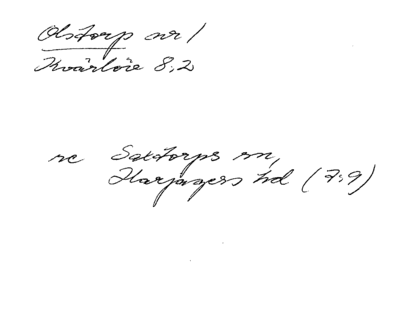 Olstorp nr 1
Kvärlöv 8:2
se Saxtorps sn,
Harjagers hd (7:9)